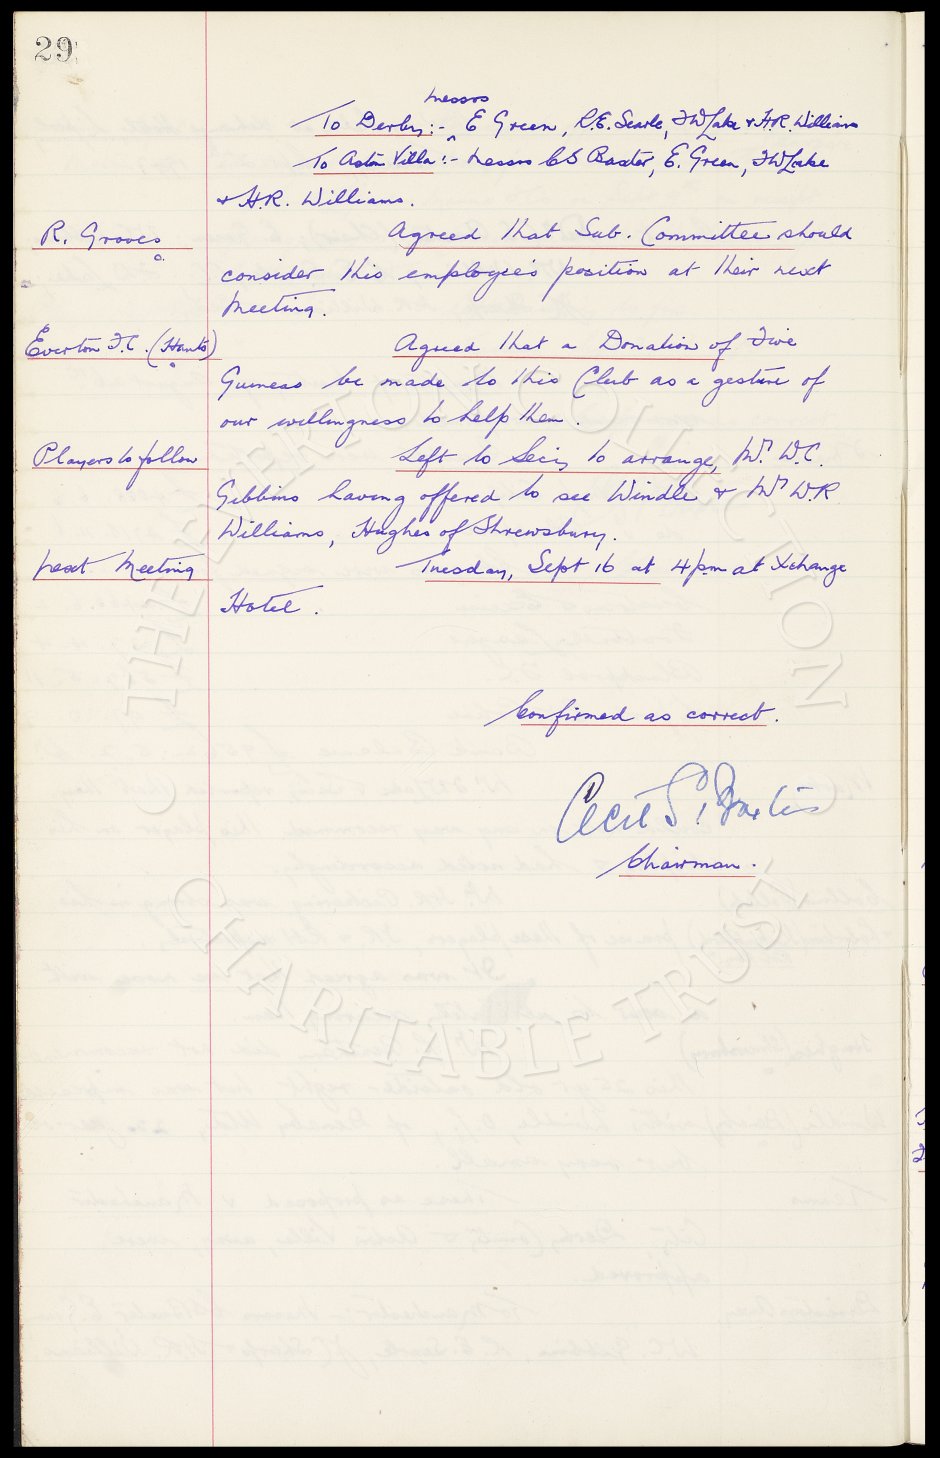 29
Messrs
To Derby:- ^ E Green, R.E. Searle, F W Lake & H.R. Williams
To Aston Villa:- Messrs C S Baxter, E. Green, F W Lake
& H.R. Williams.
R. Groves Agreed that Sub. Committee should
consider this employee's position at their next
Meeting.
Everton F.C. (Hants) Agreed that a Donation of Five
Guineas be made to this Club as a gesture of
our willingness to help them.
Players to follow Left to Secy to arrange, Mr W.C.
Gibbins having offered to see Windle & Mr W.R
Williams, Hughes of Shrewsbury.
Next Meeting Tuesday, Sept 16 at 4pm at Xchange
Hotel.
Confirmed as correct.
Cecil S. Baxter
Chairman.
THE EVERTON COLLECTION
CHARITABLE TRUST